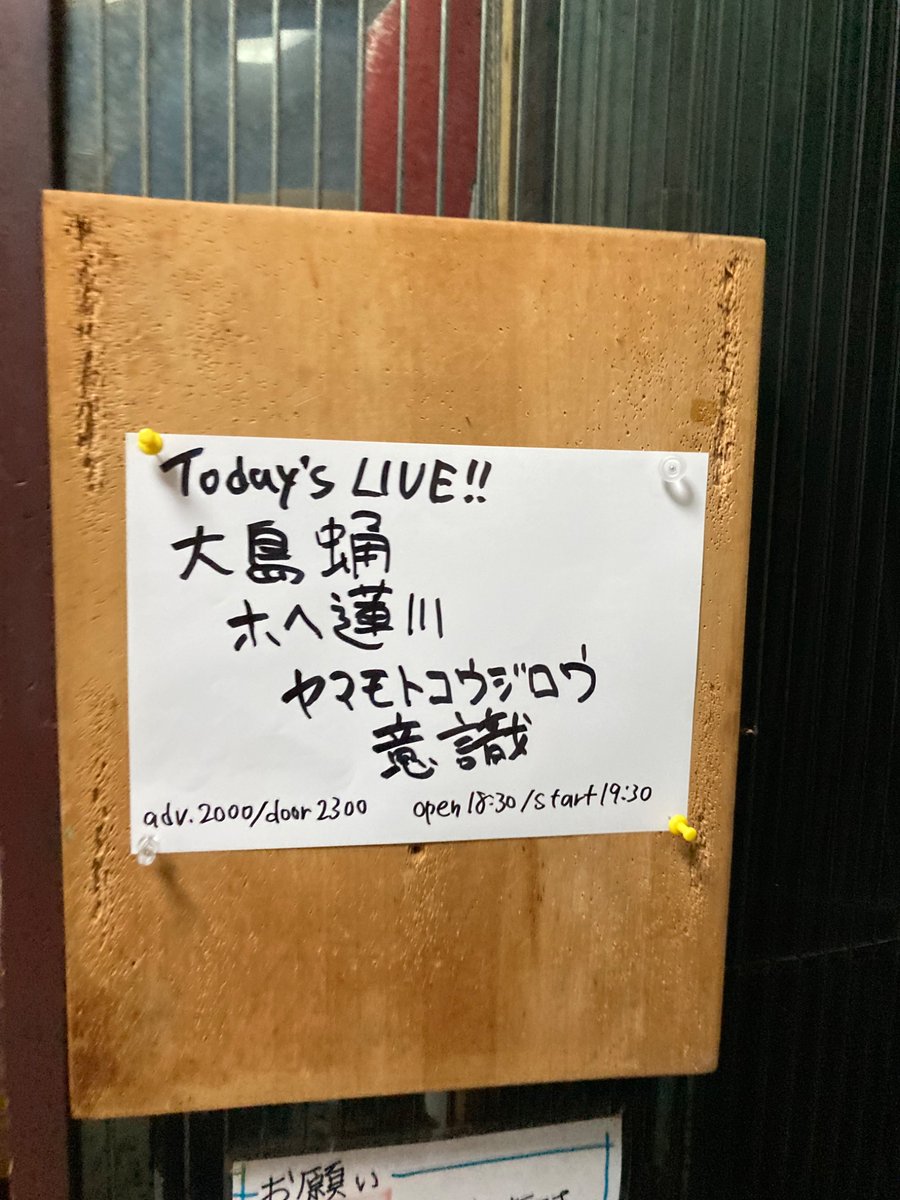 Today's LIVE!!
大島蛹
ホヘ蓮川
ヤマモトコウジロウ
意識
adv.2000/door2300 open18:30/start19:30
お願い